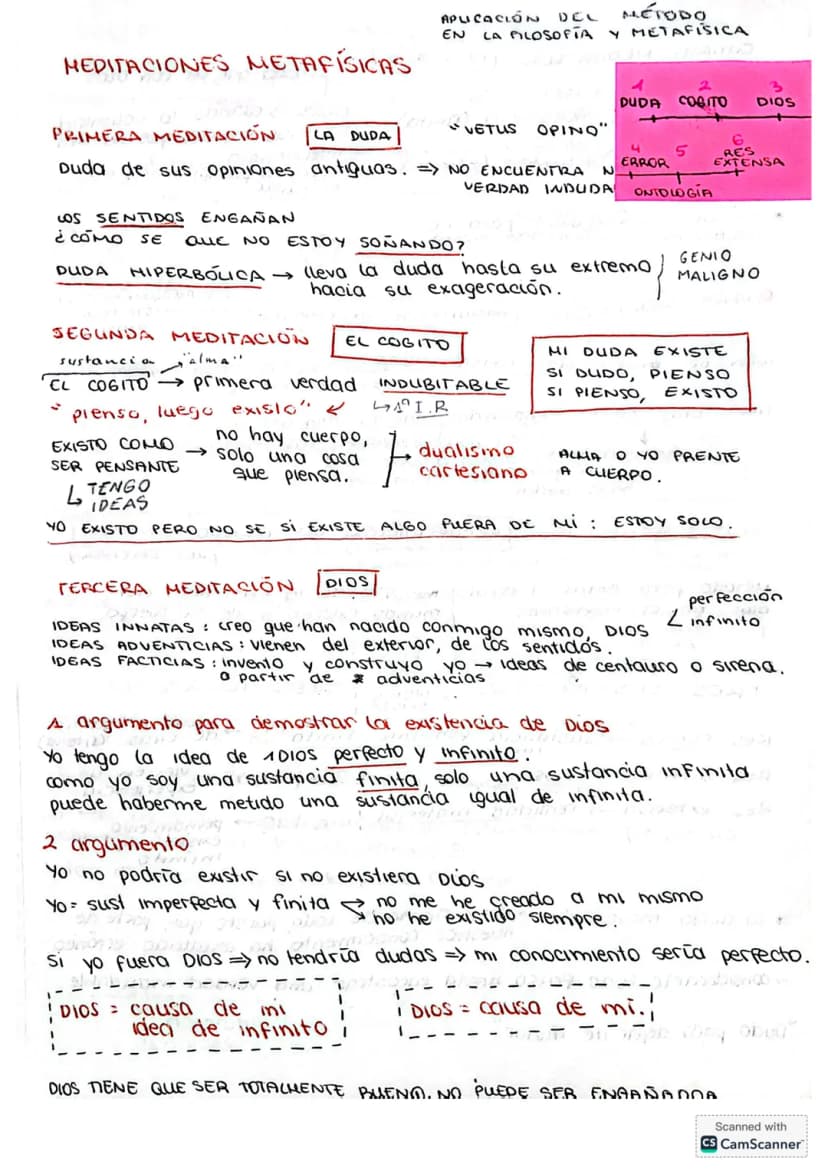 APLICACIÓN DEL MÉTODO
EN LA FILOSOFÍA Y METAFÍSICA
MEDITACIONES METAFÍSICAS
1 2 3
DUDA COGITO DIOS
4 5 6
ERROR RES
EXTENSA
ONTOLOGÍA
PRIMERA MEDITACIÓN LA DUDA "VETUS OPINO"
Duda de sus opiniones antiguas. => NO ENCUENTRA N
VERDAD INDUDA
LOS SENTIDOS ENGAÑAN
¿CÓMO SE QUE NO ESTOY SOÑANDO?
DUDA HIPERBÓLICA → lleva la duda hasta su extremo
hacia su exageración.
GENIO
MALIGNO
SEGUNDA MEDITACIÓN EL COGITO
sustancia "alma"
EL COGITO → primera verdad INDUBITABLE
"pienso, luego existo" ↳ 1º I.R
MI DUDA EXISTE
SI DUDO, PIENSO
SI PIENSO, EXISTO
EXISTO COMO
SER PENSANTE
→ no hay cuerpo,
solo una cosa
que piensa.
→ dualismo
cartesiano
ALMA O YO FRENTE
A CUERPO.
↳ TENGO
IDEAS
YO EXISTO PERO NO SE SI EXISTE ALGO FUERA DE MÍ : ESTOY SOLO.
TERCERA MEDITACIÓN DIOS
IDEAS INNATAS : creo que han nacido conmigo mismo, DIOS
perfección
infinito
IDEAS ADVENTICIAS : vienen del exterior, de los sentidos.
IDEAS FACTICIAS : invento y construyo yo → ideas de centauro o sirena.
a partir de adventicias
1 argumento para demostrar la existencia de DIOS
Yo tengo la idea de 1 DIOS perfecto y infinito.
como yo soy una sustancia finita, solo una sustancia infinita
puede haberme metido una sustancia igual de infinita.
2 argumento
Yo no podría existir si no existiera Dios
Yo = sust imperfecta y finita → no me he creado a mi mismo
→ no he existido siempre.
si yo fuera DIOS => no tendría dudas => mi conocimiento sería perfecto.
DIOS = causa de mi
idea de infinito
DIOS = causa de mí.
DIOS TIENE QUE SER TOTALMENTE BUENO, NO PUEDE SER ENGAÑADOR
Scanned with
CS CamScanner